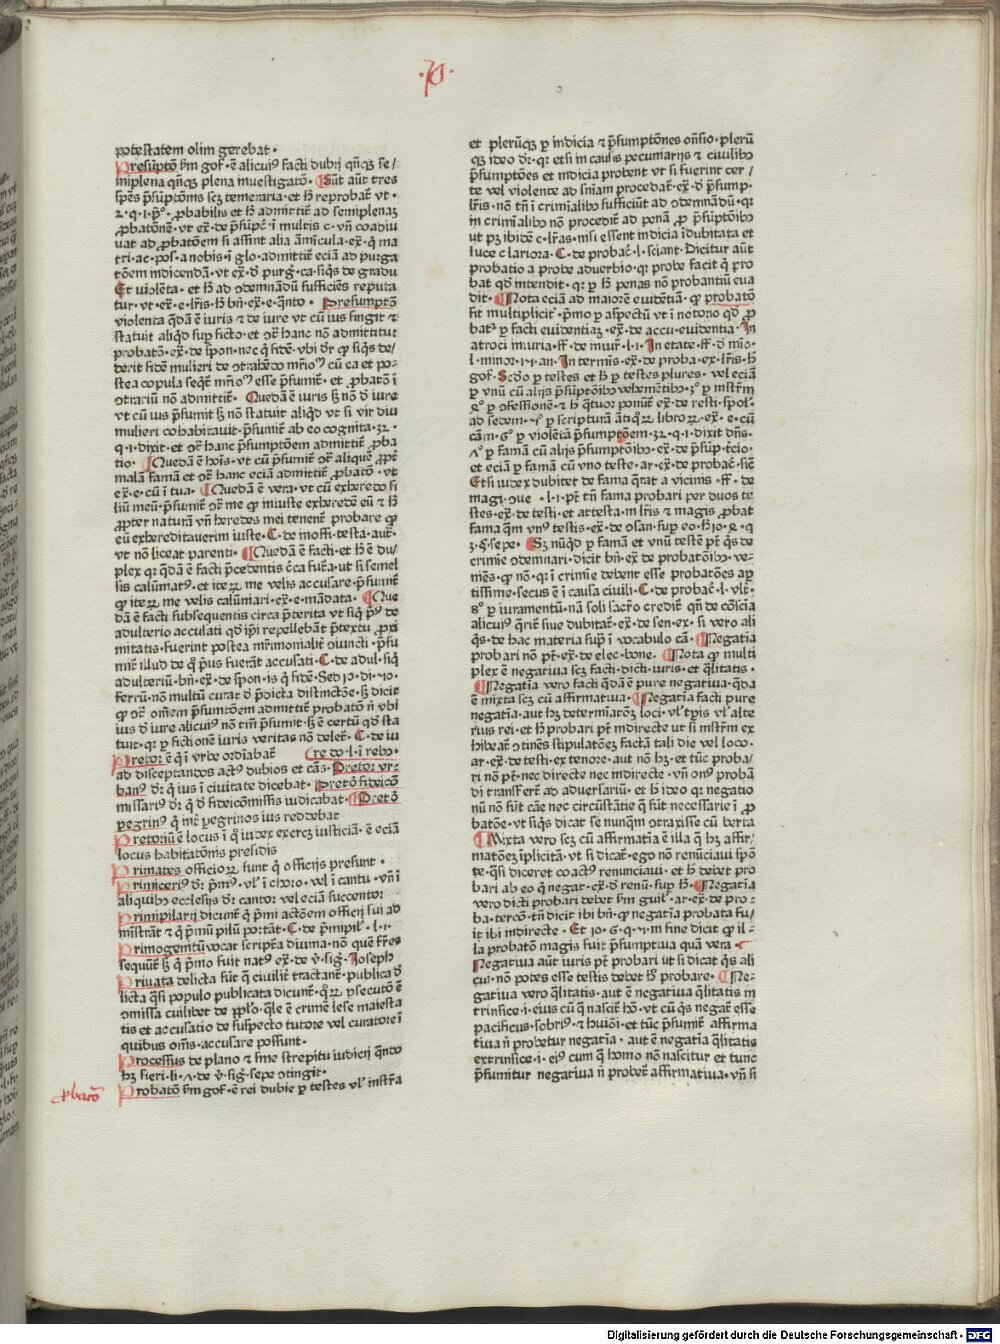 potestatem olim gerebat ·
Presūptō ẜm gof̄ · ē alicuiꝰ facti dubij qn̄qꝫ se/
miplena qn̄qꝫ plena inuestigatō · Sūt aūt tres
spēs p̄sūptōnis scꝫ temeraria · et ħ reprobat᷑ vt ·
2 · q · 1 · pͥº · ꝓbabilis et ħ admittit᷑ ad semiplenaꝫ
ꝓbatōnē · vt ex̄ · de p̄sūpt̄ · i multis c · vn̄ coadiu
uat ad ꝓbatōem si assint alia āmīcula · ex̄ · q̄ ma
tri · ac · pos · a nobis · i glo · admittit᷑ eciā ad purga
tōem indicendā · vt ex̄ · d̄ purḡ · ca · siqͥs de gradu
Et violēta · et ħ ad ꝯdemnādū sufficiēs reputa
tur · vt · ex̄ · e · lr̄is · ħ bn̄ · ex̄ · e · qͥnto · Presumptō
violenta qdā ē iuris ⁊ de iure vt cū ius fingit ⁊
statuit aliqd sup ficto · et ↄͬ hanc nō admittitur
probatō · ex̄ · de spon · nec q̄ fidē · vbi dr̄ ꝙ siqͥs de/
derit fidē mulieri de ↄtrahēdo mr̄ioꝰ cū ea et po-
stea copula seqt̄ mr̄ioꝰ esse p̄sumit᷑ · et ꝓbatō ī
ↄtrariū nō admittit᷑ · Quedā ē iuris ħ nō d̄ iure
vt cū ius p̄sumit ħ nō statuit aliqd vt si vir diu
mulieri cohabitauit · p̄sumit᷑ ab eo cognita · 32 ·
q · 1 · dixit · et ↄͬ hanc p̄sumptōem admittit᷑ ꝓba
tio · Quedā ē hoīs · vt cū p̄sumit᷑ ↄͬ aliquē ꝓpt̄
malā famā et ↄͬ hanc eciā admittit᷑ ꝓbatō · vt
ex̄ · e · cū ī tua · Quedā ē vera · vt cū exheredo si
liū meū · p̄sumit᷑ ↄͬ me ꝙ iniuste exheredē eū ⁊ ħ
ꝓpter naturā vn̄ heredes mei tenent᷑ probare ꝙ
eū exhereditauerim iuste · C · de inoffi · testa · aut̄ ·
vt nō liceat parenti · Quedā ē facti · et ħ ē du/
plex qꝛ qdā ē facti p̄cedentis c̄ca fut̄a · ut si semel
sis calūniatꝰ · et iteꝝ me velis accusare · p̄sumit᷑
ꝙ iteꝝ me velis calūniari · ex̄ · e · mādata · Que
dā ē facti subsequentis circa p̄terita vt siqͥ pͥꝰ de
adulterio acculati qd ip̄i repellebāt᷑ p̄textu ꝓxi
mitatis · fuerint postea mr̄imonialit᷑ ↄiuncti · p̄su
mit᷑ illud de qͦ pͥus fuerāt accusati · C · de adul · siqͥ
adulteriū · bn̄ · ex̄ · de spon · is qͥ fidē · Sed io · di · io ·
ferrū · nō multū curat d̄ p̄dicta distinctōe · ħ dicit
ꝙ ↄͬ om̄em p̄sumptōem admittit᷑ probatō n̄ vbi
ius d̄ iure alicuiꝰ nō tm̄ p̄sumit · ħ ē certū qd sta
tuit · qꝛ p fictionē iuris veritas nō delet᷑ · C · de iu
Pretor ē qͥ ī vrbe ordīabat᷑ (re do · l · ī reb̄ ·
ad disceptandos actꝰ dubios et cāͣs · Pretor vr-
banꝰ dr̄ · qͥ ius ī ciuitate dicebat · Pretōͬ fideicō
missariꝰ dr̄ · qͥ d̄ fideicōmissis iudicabat · Pretōͬ
pegrinꝰ qͥ int̄ pegrinos ius reddebat
Pretoriū ē locus ī qͦ iudex exercꝫ iusticiā · ē eciā
locus habitatōnis presidis
Primates officioꝝ sunt qͥ officijs presunt ·
Primiceriꝰ dr̄ pͥmꝰ · vl̄ ī choro · vel ī cantu · vn̄ ī
aliquib ecclesijs dr̄ cantor vel eciā succentor
Primipilarij dicunt᷑ qͥ pͥmi actōem officij sui ad
mīstrāt ⁊ qͥ pͥmū pilū portāt · C · de pͥmipil̄ · l · 1 ·
Primogenitū vocat scriptͣa diuina · nō quē fr̄es
sequūt᷑ ħ qͥ pͥmo fuit natꝰ ex̄ · de v̄ · siḡ · Joseph
Priuata delicta sūt q̄ ciuilit᷑ tractant᷑ · publica d̄
licta qͣsi populo publicata dicunt᷑ · qͦꝝ psecutō ē
ↄmissa cuilibet de pp̄lo · qͣle ē crimē lese maiesta
tis et accusatio de suspecto tutore vel curatore ī
quibus om̄s · accusare possunt ·
Processus de plano ⁊ sine strepitu iudicij qn̄do
hꝫ fieri · li · 7 · de v̄ · siḡ · sepe ↄtingit ·
Probatō ẜm gof̄ · ē rei dubie p testes vl̄ instr̄a
et plerūqꝫ p indicia ⁊ p̄sumptōnes on̄sio · plerū
qꝫ ideo dr̄ · qꝛ etsi in causis pecuniarijs ⁊ ciuilib
p̄sumptōes et indicia probent vt si fuerint cer /
te vel violente ad sn̄iam procedat᷑ · ex̄ · d̄ p̄sump ·
lr̄is · nō tn̄ ī crimīalib sufficiūt ad ↄdemnādū · qꝛ
in crimīalib nō procedit᷑ ad penā ꝓ p̄sūptōib
ut pꝫ ibidē c · lr̄as · nisi essent indicia īdubitata et
luce clariora · C · de probac̄ · l · sciant · Dicitur aūt
probatio a probe aduerbio · qꝛ probe facit qͥ pro
bat qd intendit · qꝛ p ħ penas nō probantiū eua
dit · Nota eciā ad maiorē euidētiā · ꝙ probatō
fit multiplicit᷑ · pͥmo p aspectū vt ī notorio qd ꝓ
bat᷑ p facti euidentiaꝫ · ex̄ · de accu · euidentia · In
atroci iniuria · ff · de iniur̄ · l · 1 · In etate · ff · d̄ mīo ·
l · minor · 14 · an · In termīs · ex̄ · de proba · ex · lr̄is · ħ
gof̄ · Scd̄o p testes et ħ p testes plures · vel eciā
p vnū cū alijs p̄sūptōib vehemētib · 3º p instrm̄
4º p ↄfessionē · ⁊ ħ qͣtuor ponūt᷑ ex̄ · de resti · spol̄ ·
ad sedem · 5º p scripturā ātiqͦꝝ libroꝝ · ex̄ · e · cū
cām · 6º p violētā p̄sumptōem · 32 · q · 1 · dixit dn̄s ·
7º p famā cū alijs p̄sumptōib · ex̄ · de p̄sūp · tc̄io ·
et eciā p famā cū vno teste · ar · ex̄ · de probac̄ · siē
Etsi iudex dubitet de fama q̄rat a vicinis · ff · de ·
magi · ↄue · l · 1 · pt̄ tn̄ fama probari per duos te
stes · ex̄ · de testi · et attesta · in lr̄is ⁊ magis ꝓbat᷑
fama qͣm vnꝰ testis · ex̄ · de ↄsan · sup eo · ħ io · 4 · q
3 · § · sepe · Sꝫ nūqd p famā et vnū testē pt̄ qͥs de
crimīe ↄdemnari · dicit bn̄ · ex̄ · de probatōib · ve-
niēs · ꝙ nō · qꝛ ī crimīe debent esse probatōes ap
tissime · secus ē ī causa ciuili · C · de probac̄ · l · vlt̄ ·
8º p iuramentū · nā soli sacr̄o credit᷑ qn̄ de cōscīa
alicuiꝰ qͥrit᷑ siue dubitat᷑ · ex̄ · de sen · ex · si vero ali
qͥs · de hac materia supͣ ī vocabulo cāͣ · Negatīa
probari nō pt̄ · ex̄ · de elec · bone · Nota ꝙ multi
plex ē negatīua scꝫ facti · dicti · iuris · et qͣlitatis ·
Negatīa vero facti qdā ē pure negatiua · qdā
ē mixta scꝫ cū affirmatiua · Negatīa facti pure
negatīa · aut hꝫ determīatōꝫ loci · vl̄ tp̄is vl̄ alte
rius rei · et ħ probari pt̄ indirecte ut si instrm̄ ex
hibeat᷑ ↄtinēs stipulatōeꝫ factā tali die vel loco ·
ar · ex̄ · de testi · ex tenore · aut nō hꝫ · et tūc proba/
ri nō pt̄ · nec directe nec indirecte · vn̄ onꝰ probā
di transfert᷑ ad aduersariū · et ħ ideo qꝛ negatio
nū nō sūt cāe nec circūstātie q̄ sūt necessarie ī ꝓ
batōe · vt siqͥs dicat se nunqͣm ↄtraxisse cū berta
Mixta vero scꝫ cū affirmatīa ē illa q̄ hꝫ affir/
matōeꝫ īplicitā · vt si dicat᷑ · ego nō renūciaui spō
te · qͣsi diceret coactꝰ renunciaui · et ħ debet pro
bari ab eo qͥ negat · ex̄ · d̄ renū · sup ħ · Negatīa
vero dicti probari debet ẜm guil̄ · ar · ex̄ · de pro-
ba · tercō · tn̄ dicit ibi bn̄ · ꝙ negatīa probata fu/
it ibi indirecte · Et io · 6 · q · 5 · in fine dicit ꝙ il-
la probatō magis fuit p̄sumptiua qͣm vera ·
Negatīua aūt iuris pt̄ probari ut si dicat qͥs ali
cui · nō potes esse testis debet ħ probare · Ne-
gatiua vero qͣlitatis · aut ē negatiua qͣlitatis in
trinsice · i · eius cū qͣ nascit᷑ hō · vt cū qͥs negat᷑ esse
pacificus · sobriꝰ · ⁊ huiōi · et tūc p̄sumit᷑ affirma
tiua n̄ probetur negatīa · aut ē negatiua qͣlitatis
extrinsice · i · eiꝰ cum qͣ homo nō nascitur et tunc
p̄sumitur negatiua n̄ probet᷑ affirmatiua · vn̄ si
ꝓbatō
Digitalisierung gefördert durch die Deutsche Forschungsgemeinschaft · DFG